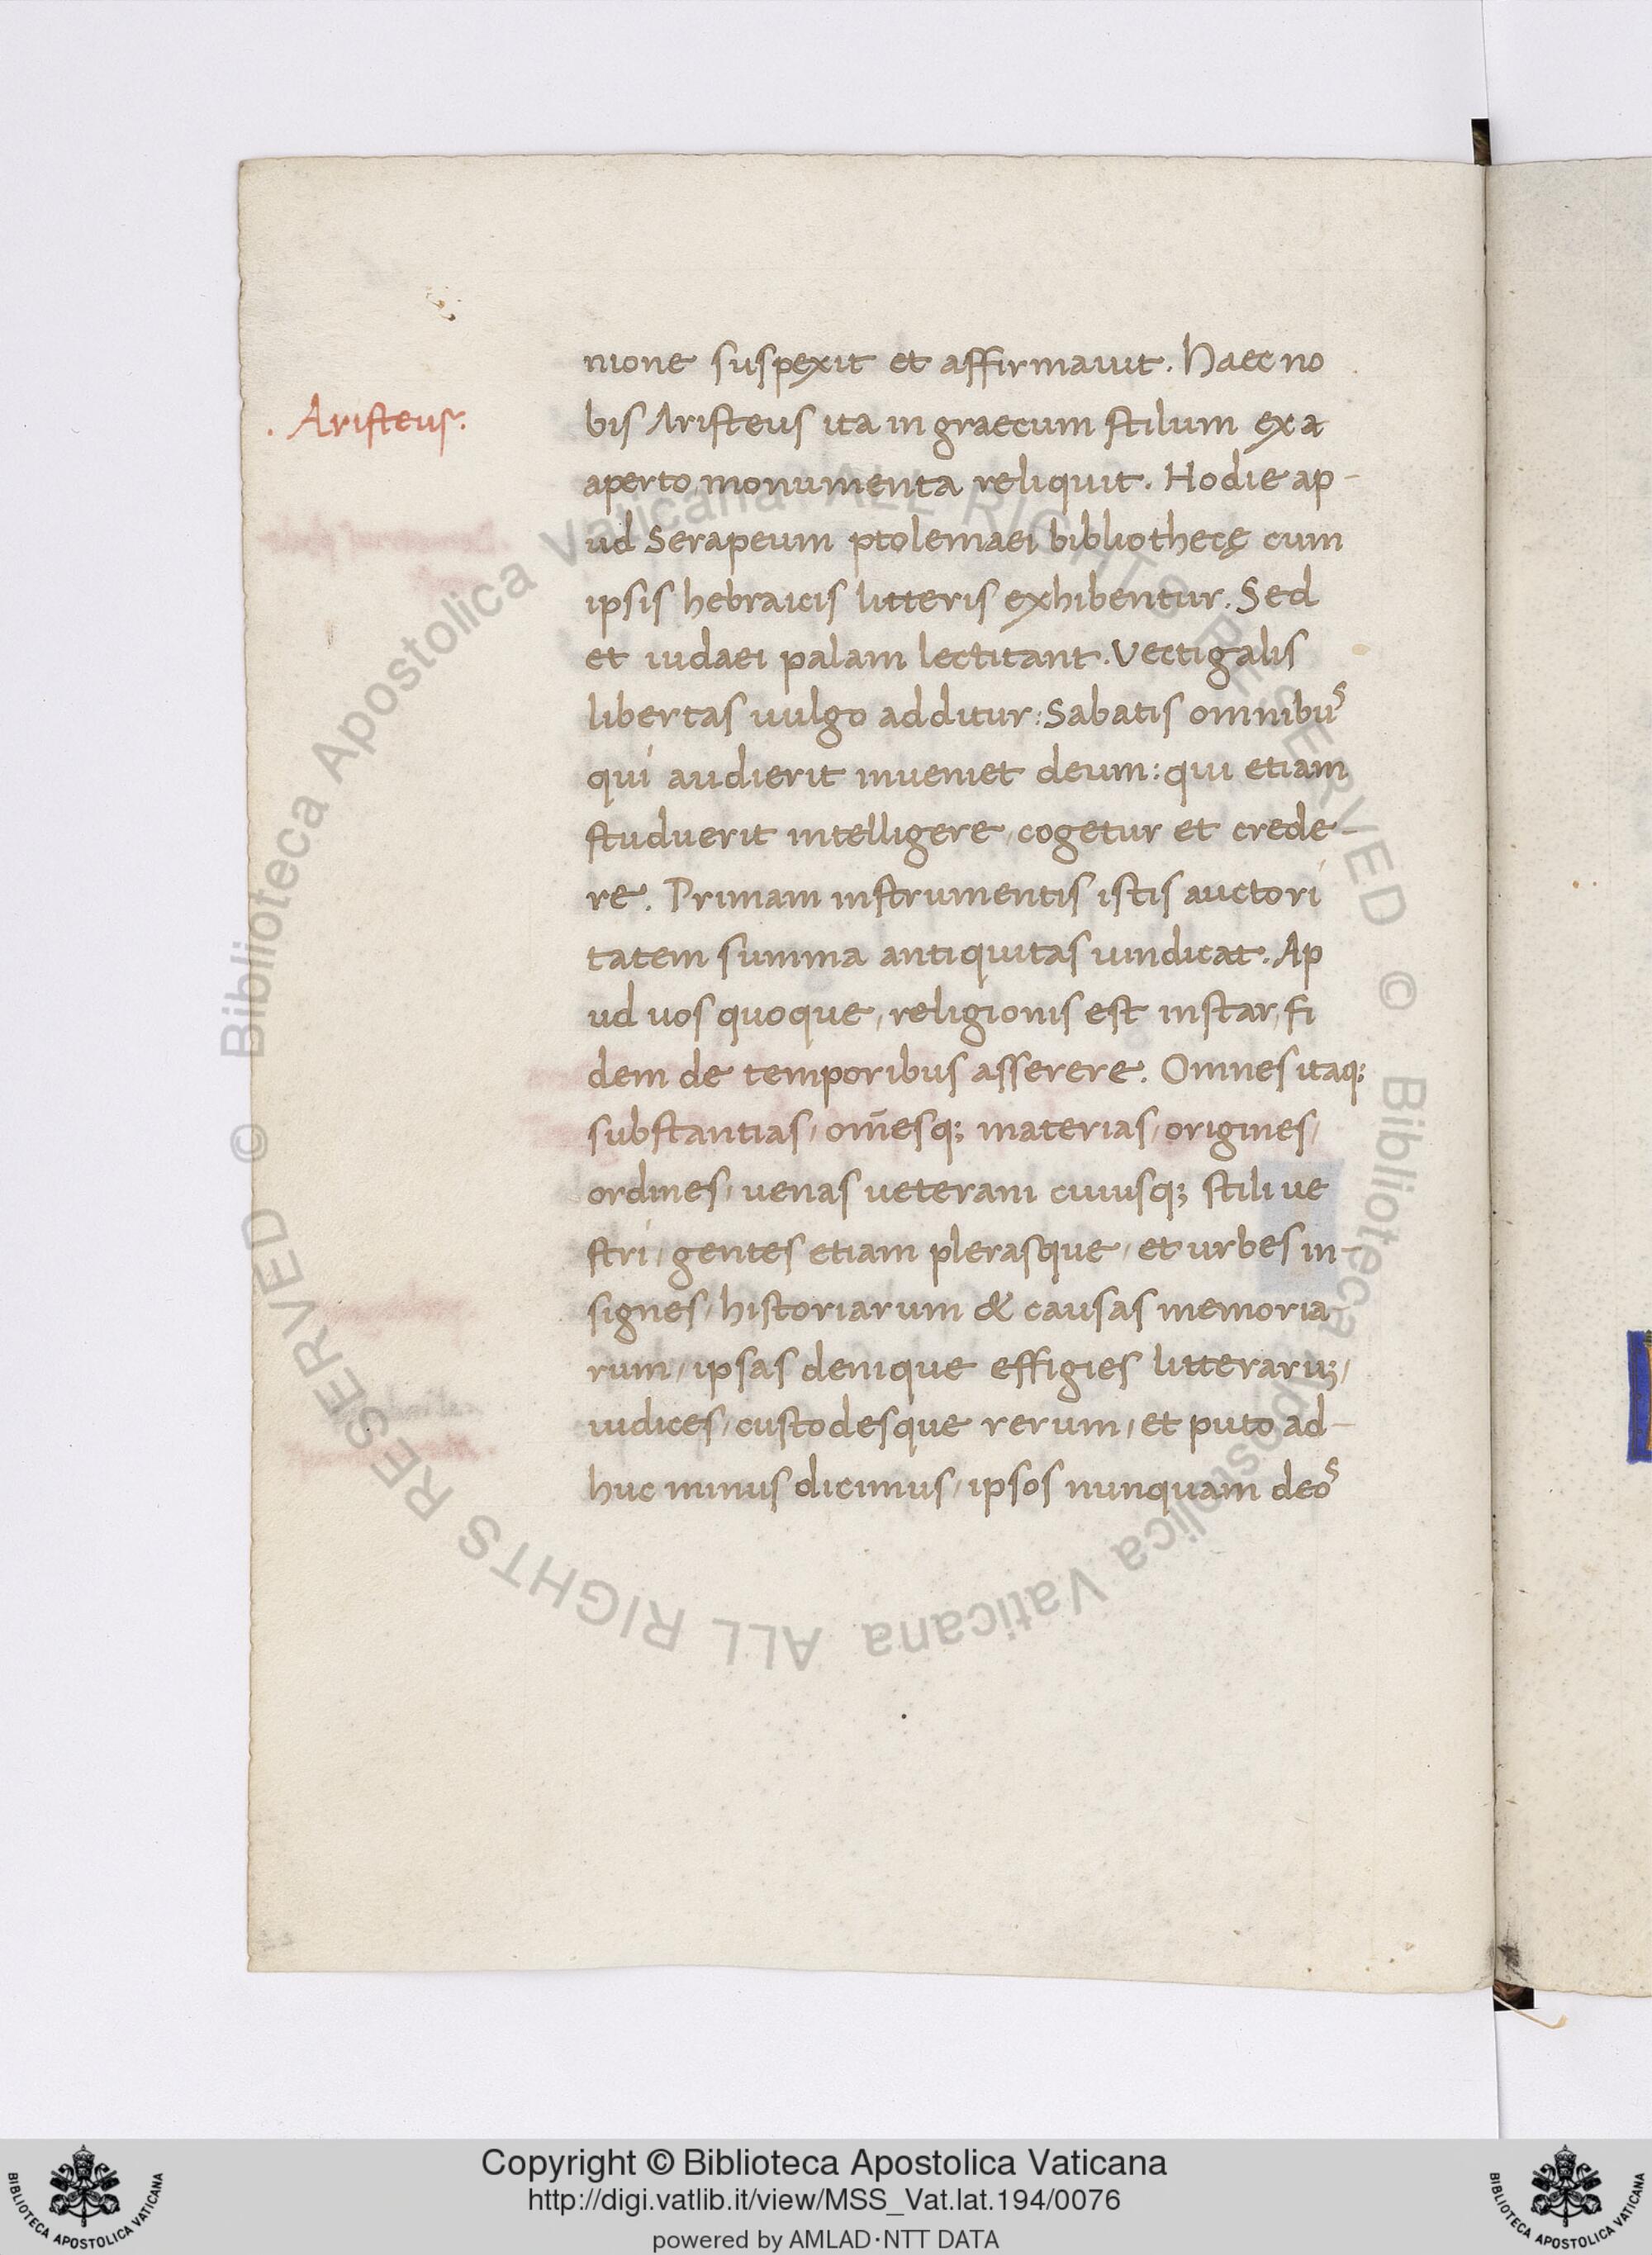 . Aristeus.
nione suspexit et affirmauit. Haec no
bis Aristeus ita in graecum stilum ex a
aperto, monumenta reliquit. Hodie ap-
ud Serapeum ptolemaei bibliothecę cum
ipsis hebraicis litteris exhibentur. Sed
et iudaei palam lectitant. Vectigalis
libertas uulgo additur: Sabatis omnibus
qui audierit inueniet deum: qui etiam
studuerit intelligere, cogetur et crede-
re. Primam instrumentis istis auctori
tatem summa antiquitas uindicat. Ap
ud uos quoque, religionis est instar, fi
dem de temporibus asserere. Omnes itaq;
substantias, om̄esq; materias, origines,
ordines, uenas ueterani cuiusq; stili ue
stri, gentes etiam plerasque, et urbes in-
signes, historiarum & causas memoria
rum, ipsas denique effigies litteraruꝫ,
iudices, custodesque rerum, et puto ad-
huc minus dicimus, ipsos nunquam deos
© Biblioteca Apostolica Vaticana ALL RIGHTS RESERVED © Biblioteca Apostolica Vaticana ALL RIGHTS RESERVED
Copyright © Biblioteca Apostolica Vaticana
http://digi.vatlib.it/view/MSS_Vat.lat.194/0076
powered by AMLAD·NTT DATA
BIBLIOTECA APOSTOLICA VATICANA
BIBLIOTECA APOSTOLICA VATICANA